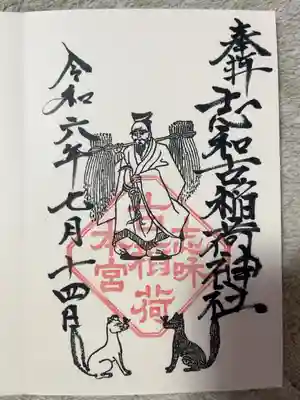 奉拝
志和古稲荷神社
令和六年七月十四日
稲荷
本宮